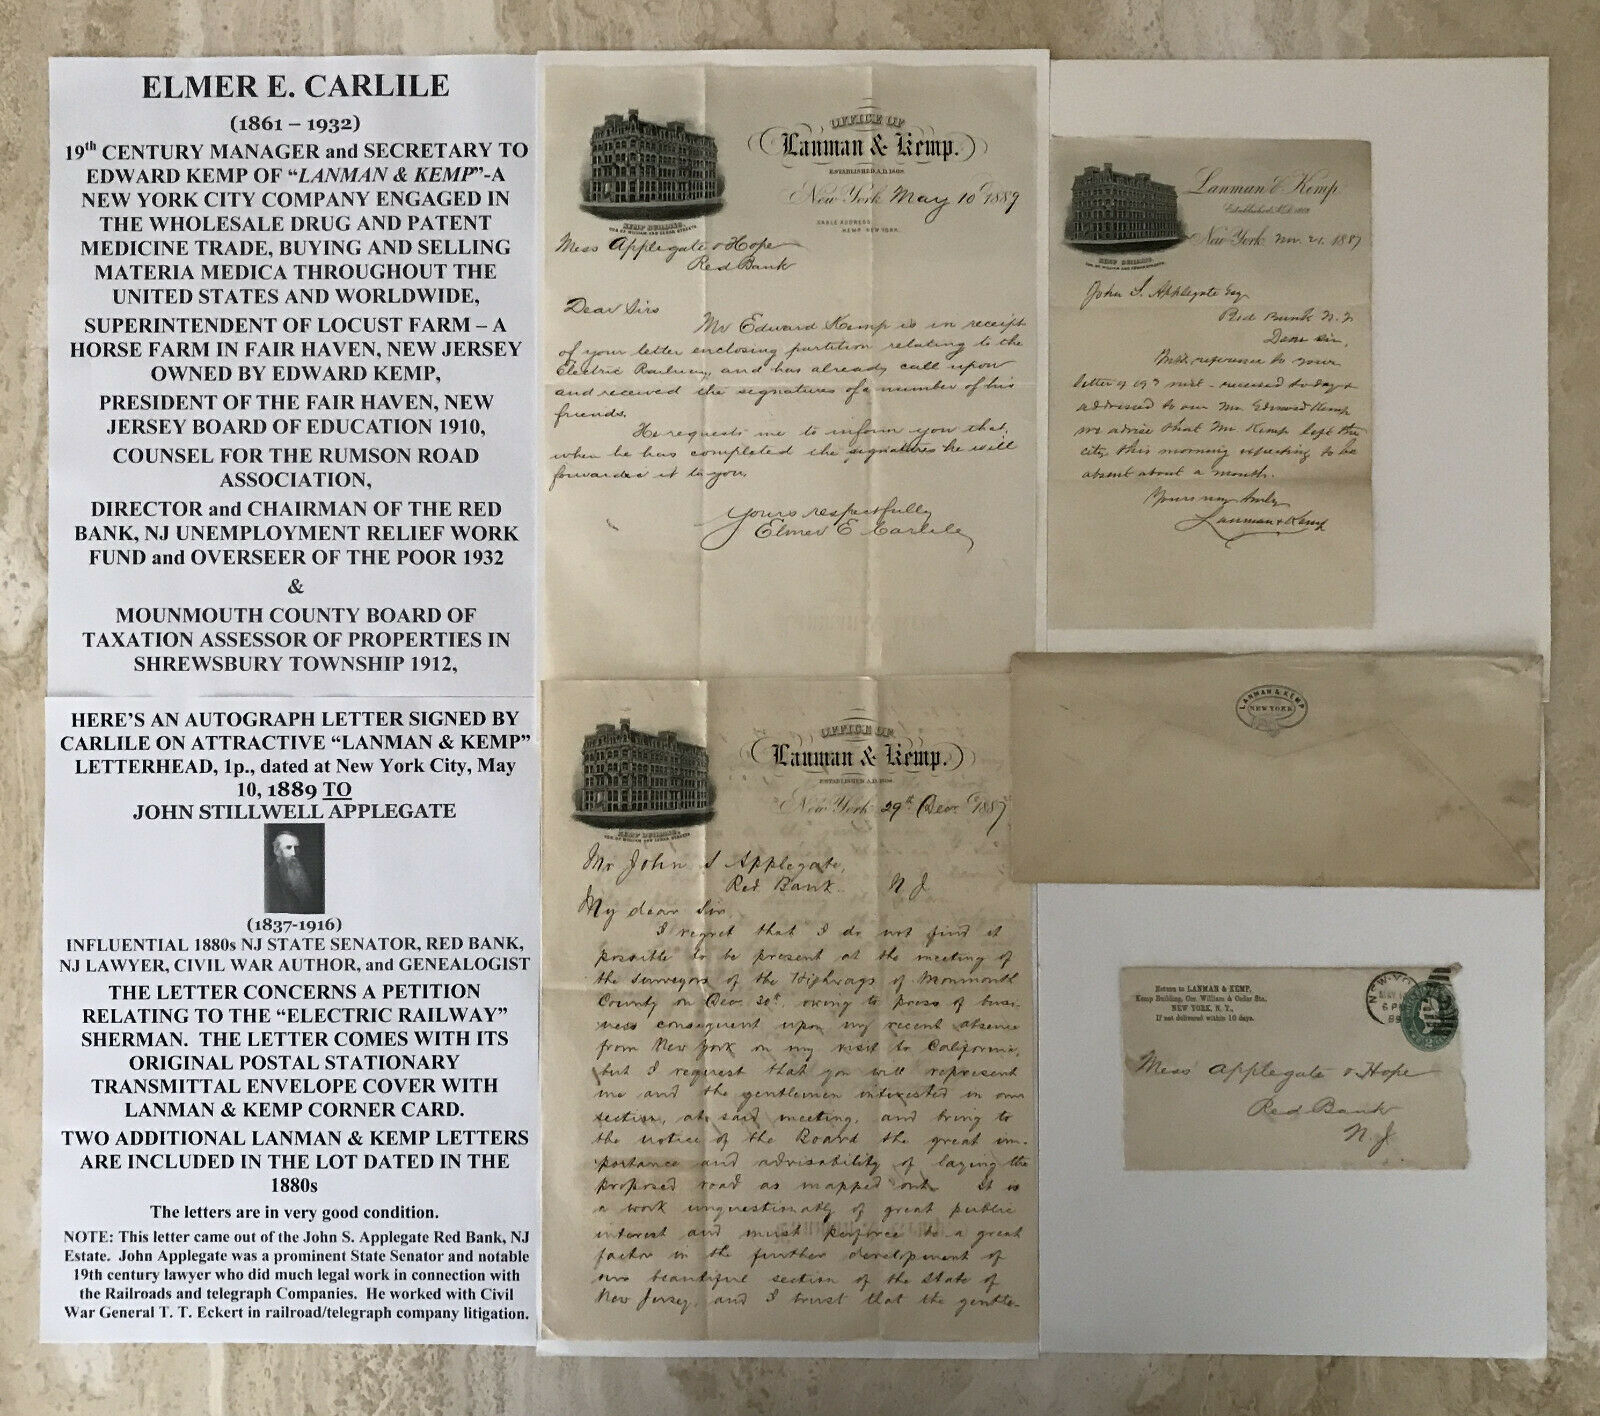 ELMER E. CARLILE
(1861 – 1932)
19th CENTURY MANAGER and SECRETARY TO
EDWARD KEMP OF “LANMAN & KEMP”-A
NEW YORK CITY COMPANY ENGAGED IN
THE WHOLESALE DRUG AND PATENT
MEDICINE TRADE, BUYING AND SELLING
MATERIA MEDICA THROUGHOUT THE
UNITED STATES AND WORLDWIDE,
SUPERINTENDENT OF LOCUST FARM – A
HORSE FARM IN FAIR HAVEN, NEW JERSEY
OWNED BY EDWARD KEMP,
PRESIDENT OF THE FAIR HAVEN, NEW
JERSEY BOARD OF EDUCATION 1910,
COUNSEL FOR THE RUMSON ROAD
ASSOCIATION,
DIRECTOR and CHAIRMAN OF THE RED
BANK, NJ UNEMPLOYMENT RELIEF WORK
FUND and OVERSEER OF THE POOR 1932
&
MOUNMOUTH COUNTY BOARD OF
TAXATION ASSESSOR OF PROPERTIES IN
SHREWSBURY TOWNSHIP 1912,
HERE’S AN AUTOGRAPH LETTER SIGNED BY
CARLILE ON ATTRACTIVE “LANMAN & KEMP”
LETTERHEAD, 1p., dated at New York City, May
10, 1889 TO
JOHN STILLWELL APPLEGATE
(1837-1916)
INFLUENTIAL 1880s NJ STATE SENATOR, RED BANK,
NJ LAWYER, CIVIL WAR AUTHOR, and GENEALOGIST
THE LETTER CONCERNS A PETITION
RELATING TO THE “ELECTRIC RAILWAY”
SHERMAN. THE LETTER COMES WITH ITS
ORIGINAL POSTAL STATIONARY
TRANSMITTAL ENVELOPE COVER WITH
LANMAN & KEMP CORNER CARD.
TWO ADDITIONAL LANMAN & KEMP LETTERS
ARE INCLUDED IN THE LOT DATED IN THE
1880s
The letters are in very good condition.
NOTE: This letter came out of the John S. Applegate Red Bank, NJ
Estate. John Applegate was a prominent State Senator and notable
19th century lawyer who did much legal work in connection with
the Railroads and telegraph Companies. He worked with Civil
War General T. T. Eckert in railroad/telegraph company litigation.
OFFICE OF
Lanman & Kemp.
ESTABLISHED A.D. 1808.
New York May 10 1889
CABLE ADDRESS
KEMP NEW YORK.
KEMP BUILDING,
COR. OF WILLIAM AND CEDAR STREETS.
Mess Applegate & Hope
Red Bank
Dear Sirs
Mr Edward Kemp is in receipt
of your letter enclosing partition relating to the
Electric Railway, and has already call upon
and received the signatures of a number of his
friends.
He requests me to inform you that,
when he has completed the signatures he will
forwarded it to you.
Yours respectfully
Elmer E Carlile
OFFICE OF
Lanman & Kemp.
ESTABLISHED A.D. 1808.
New York 29th Decr 1887
KEMP BUILDING,
COR. OF WILLIAM AND CEDAR STREETS
Mr John S Applegate,
Red Bank N J
My dear Sir,
I regret that I do not find it
possible to be present at the meeting of
the surveyors of the Highways of Monmouth
County on Decr 30th, owing to press of busi-
ness consequent upon my recent absence
from New York on my visit to California,
but I request that you will represent
me and the gentlemen interested in our
section, at said meeting, and bring to
the notice of the Board the great im-
portance and advisability of laying the
proposed road as mapped out. It is
a work unquestionably of great public
interest and must perforce be a great
factor in the further development of
our beautiful section of the State of
New Jersey, and I trust that the gentle-
Lanman & Kemp
Established A.D. 1808
New York Nov. 21. 1887
KEMP BUILDING,
COR. OF WILLIAM AND CEDAR STREETS.
John S. Applegate Esq
Red Bank N.J.
Dear Sir,
With reference to your
letter of 19th inst - received to day &
addressed to our Mr. Edward Kemp
we advise that Mr. Kemp left the
city this morning expecting to be
absent about a month.
Yours very truly
Lanman & Kemp
LANMAN & KEMP
NEW YORK
Return to LANMAN & KEMP,
Kemp Building, Cor. William & Cedar Sts.
NEW YORK, N. Y.,
If not delivered within 10 days.
NEW-YO
MAY
6 P
89
Mess Applegate & Hope
Red Bank
N. J.